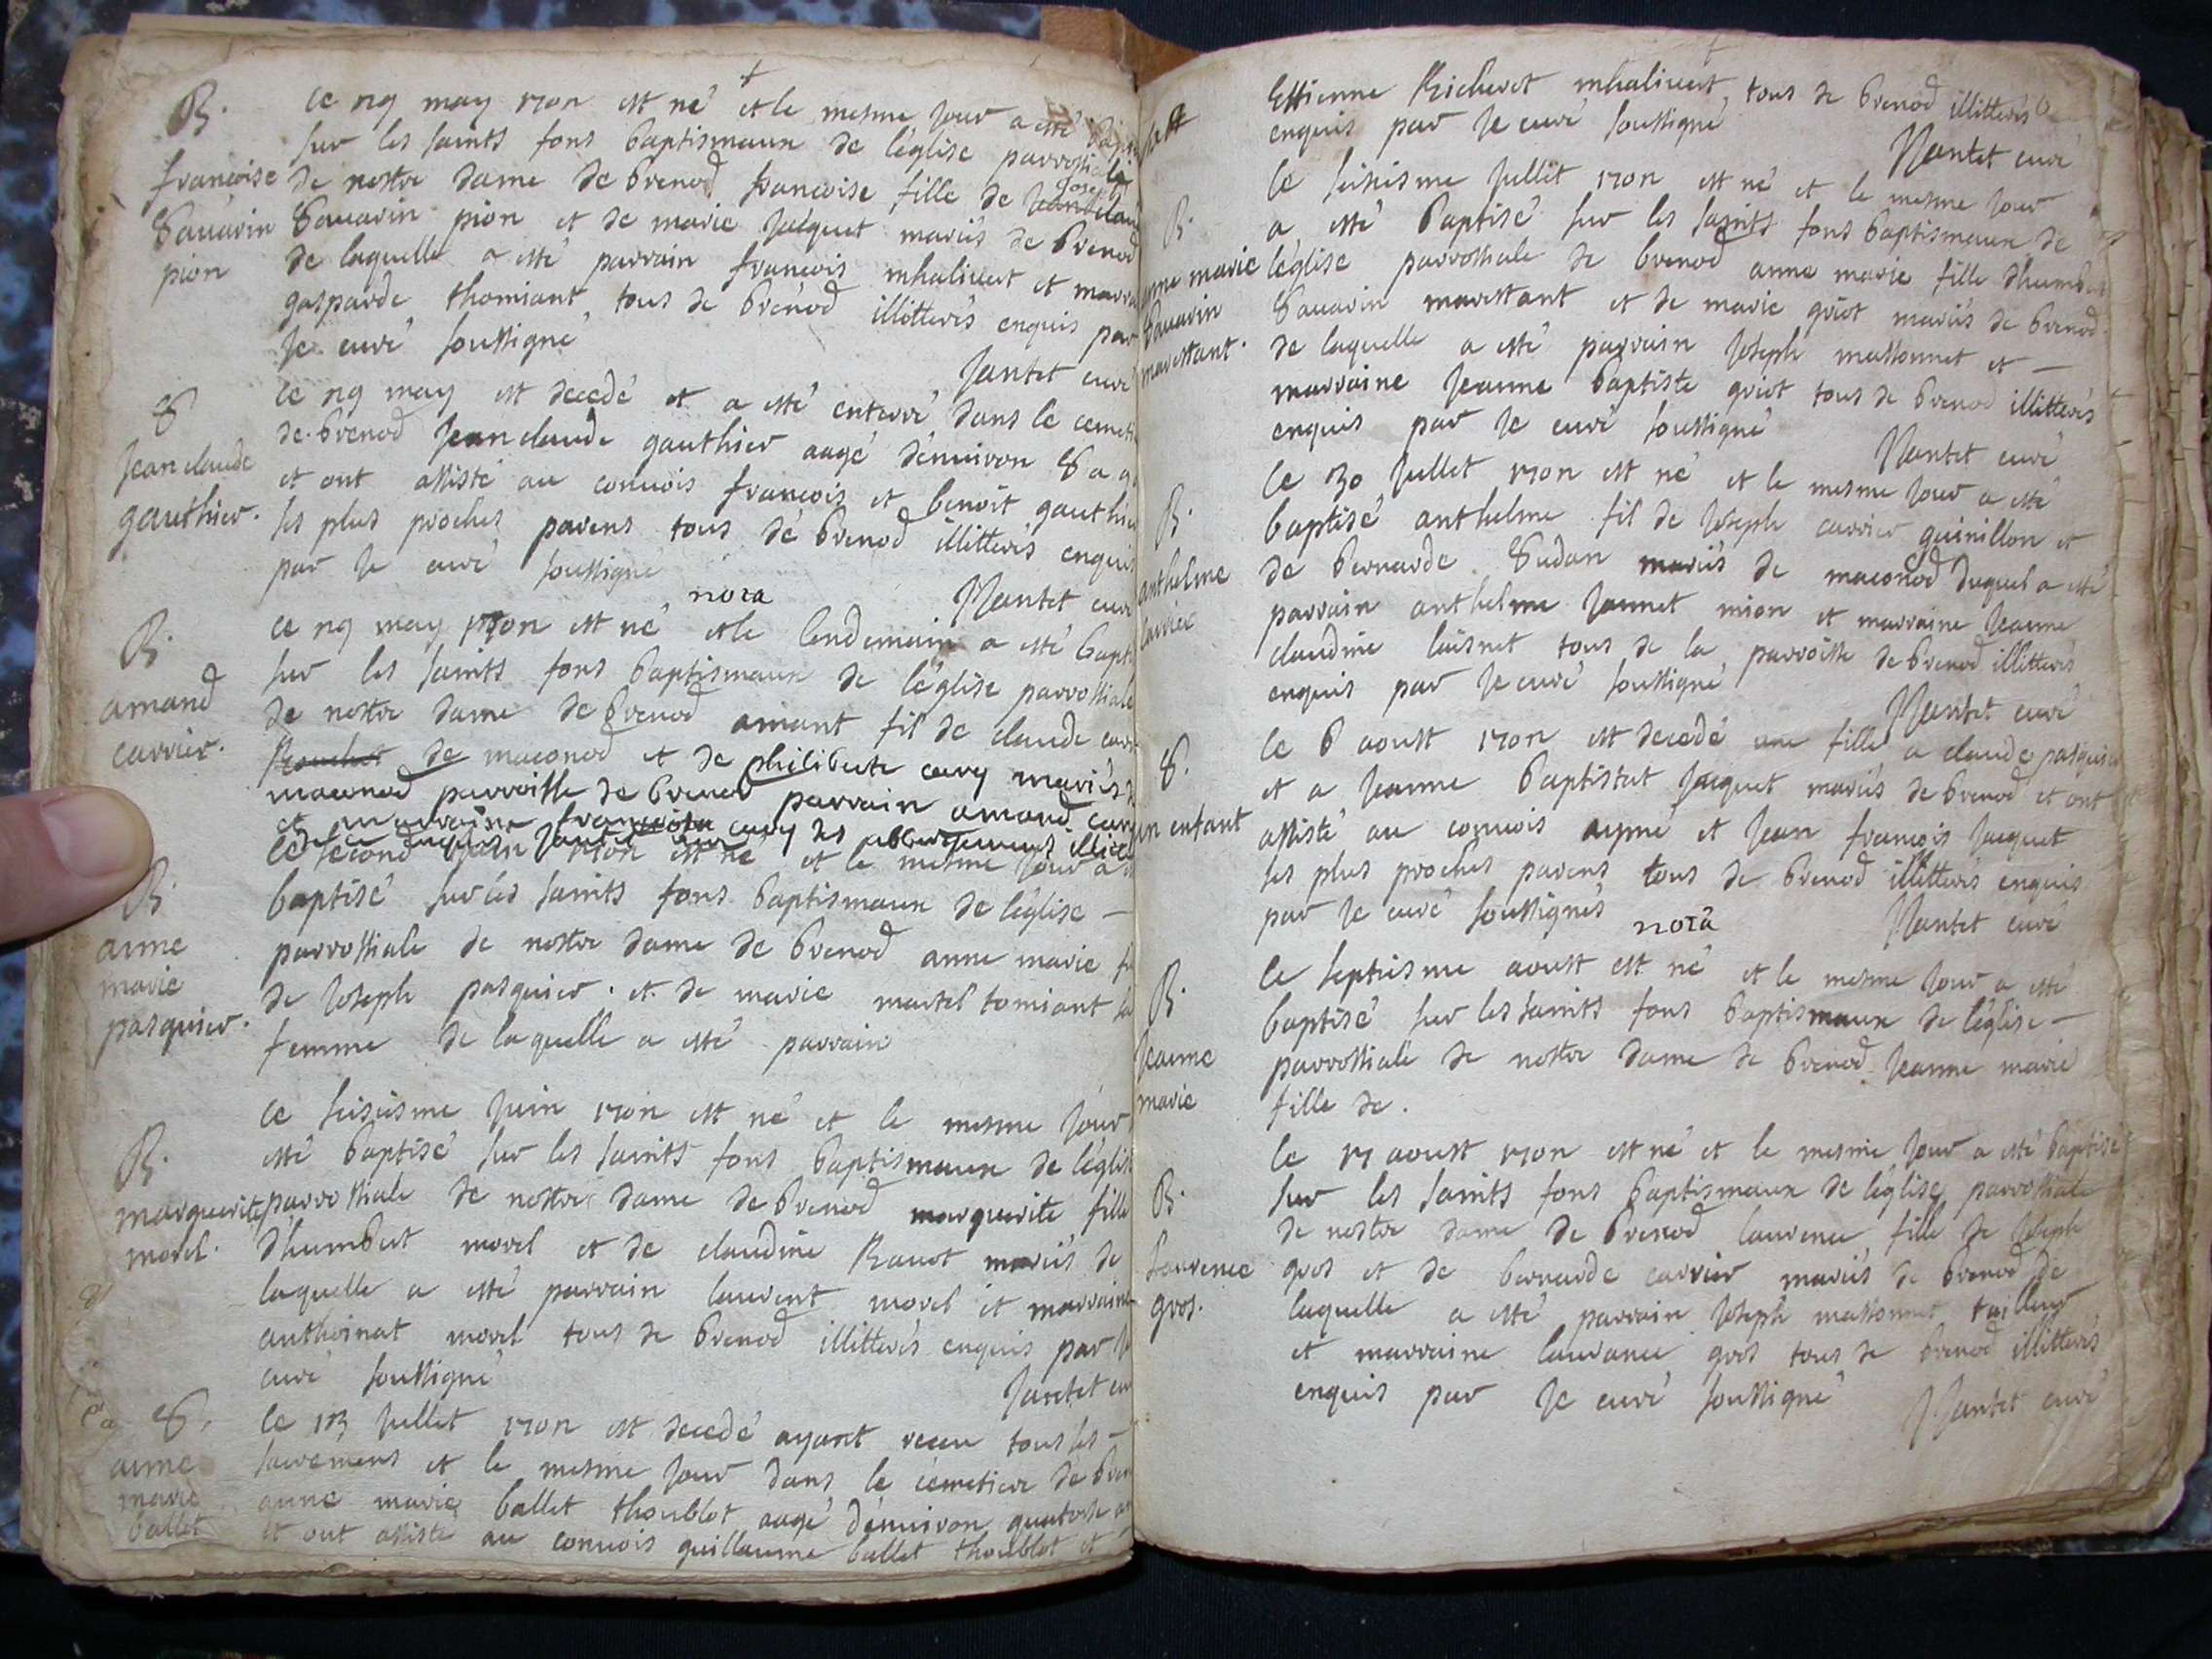 B.
françoise
Savarin
pion
Ce 29 may 1702 est né et le mesme jour a esté
sur les saints fons baptismaux de l'église parrossiale
de nostre dame de brenod françoise fille de Joseph
Savarin pion et de marie Jacquet mariés de brenod
de laquelle a esté parrain françois mhalivert et
gasparde thomiant tous de brenod illitterés enquis par
Je curé soussigné
Jantet curé
S
Jean claude
gauthier.
Ce 29 may est decedé et a esté enterré dans le
de brenod Jean claude gauthier aagé d'environ
et ont assisté au convois françois et benoit gauthier
ses plus proches parens tous de brenod illitterés enquis
par Je curé soussigné
Jantet curé
nota
B.
amand
carrier.
Ce 29 may 1702 est né et le lendemain a esté
sur les saints fons baptismaux de l'église parrossiale
de nostre dame de brenod amant fil de claude
de maconod et de philiberte cary mariés
maconod parroisse de brenod parrain amand
et marraine cary
B.
anne
marie
pasquier.
le second 1702 est né et le mesme jour a
baptisé sur les saints fons baptismaux de l'église —
parrossiale de nostre dame de brenod anne marie
de Joseph pasquier. et de marie martel tomiant
femme de laquelle a esté parrain
B.
marguerite
morel.
Ce sisiesme Juin 1702 est né et le mesme jour
esté baptisé sur les saints fons baptismaux de l'église
parrossiale de nostre dame de brenod marguerite fille
d'humbert morel et de claudine Ravot mariés de
laquelle a esté parrain laurent morel et marraine
anthoinat morel tous de brenod illitterés enquis par Je
curé soussigné
Jantet
S.
anne
marie
ballet
Ce 13 Jullet 1702 est decedé ayant receu tous les —
sacremens et le mesme jour dans le cemetiere de
anne marie ballet thoublot aagé d'environ quatorse
et ont assisté au convois guillaume ballet thoublot et
Estienne Richerot mhalivert tous de brenod illitterés
enquis par Je curé soussigné
Jantet curé
B.
anne marie
Savarin
marestant.
Ce sisiesme Jullet 1702 est né et le mesme jour
a esté baptisé sur les saints fons baptismaux de
l'église parrossiale de brenod anne marie fille
Savarin marestant et de marie griot mariés de brenod
de laquelle a esté parrain Joseph massonnet et —
marraine Jeanne baptiste griot tous de brenod illitterés
enquis par Je curé soussigné
Jantet curé
B.
anthelme
carrier
Ce 30 Jullet 1702 est né et le mesme jour a esté
baptisé anthelme fil de Joseph carrier guinillon et
de bernarde Sudan mariés de maconod duquel a esté
parrain anthelme Jannet mion et marraine Jeanne
claudine tous de la parroisse de brenod illitterés
enquis par Je curé soussigné
Jantet curé
S.
un enfant
Ce 6 aoust 1702 est decedé une fille a claude pasquier
et a Jeanne baptistat Jacquet mariés de brenod et ont
assisté au convois aymé et Jean françois Jacquet
ses plus proches parens tous de brenod illitterés enquis
par Je curé soussignés
Jantet curé
nota
B.
Jeanne
marie
Ce septiesme aoust est né et le mesme jour a esté
baptisé sur les saints fons baptismaux de l'église —
parrossiale de nostre dame de brenod Jeanne marie
fille de.
B.
laurence
gros.
le 17 aoust 1702 est né et le mesme jour a esté baptisé
sur les saints fons baptismaux de l'église parrossiale
de nostre dame de brenod laurence fille de Joseph
gros et de bernarde carrier mariés de brenod de
laquelle a esté parrain Joseph massonnet tailleur
et marraine laurance gros tous de brenod illitterés
enquis par Je curé soussigné
Jantet curé